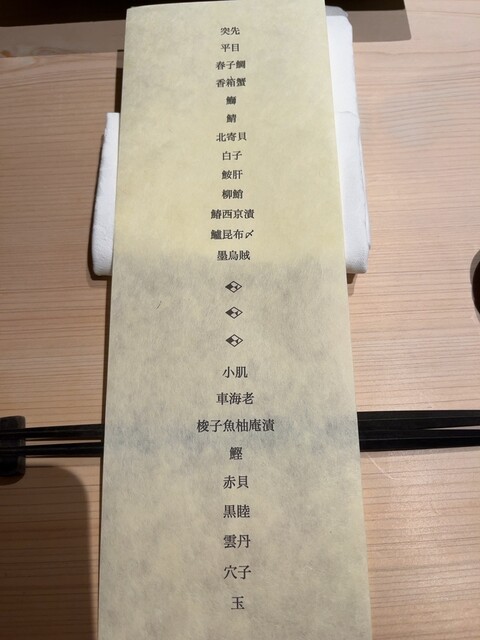 突先
平目
春子鯛
香箱蟹
鰤
鯖
北寄貝
白子
鮟肝
柳鮹
鰆西京漬
鱸昆布〆
墨烏賊
小肌
車海老
梭子魚柚庵漬
鰹
赤貝
黒睦
雲丹
穴子
玉